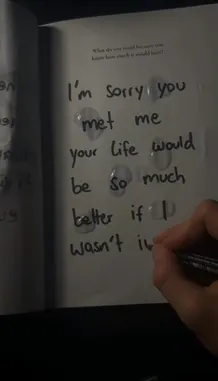 What do you need because you
know how much it would hurt?
I'm sorry you
met me
your life would
be so much
better if I
wasn't in